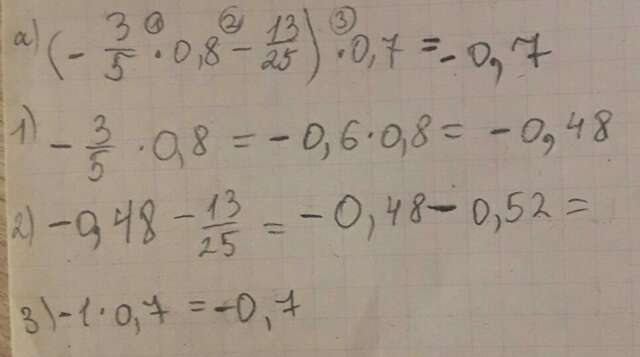 а) (- 3/5 ① · 0,8 ② - 13/25) ③ · 0,7 = - 0,7
1) - 3/5 · 0,8 = - 0,6 · 0,8 = - 0,48
2) - 0,48 - 13/25 = - 0,48 - 0,52 =
3) - 1 · 0,7 = - 0,7